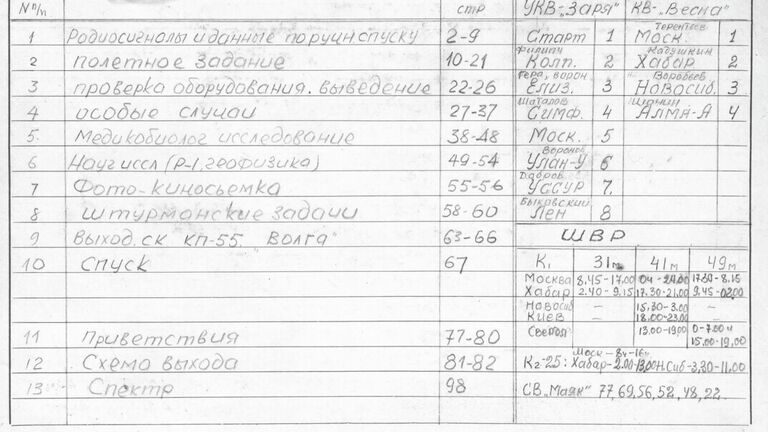 № п/п СТР УКВ-"Заря" КВ-"Весна"
1 Родиосигналы и данные по ручн. спуску 2-9
2 полетное задание 10-21
3 проверка оборудования. выведение 22-26
4 особые случаи 27-37
5. Медикобиолог исследование 38-48
6 Науч иссл (Р-1, геофизика) 49-54
7 Фото-киносъемка 55-56
8 штурманские задачи 58-60
9 Выход. СК КП-55. "Волга" 63-66
10 Спуск 67
11 Приветствия 77-80
12 Схема выхода 81-82
13 Спектр 98
Старт 1
Филипч
Колп. 2
Гера, ворон
Елиз. 3
Шаталов
Симф. 4
Моск. 5
Воронов
Улан-У 6
Уссур 7.
Быковский
Лен 8
Терентьев
Моск. 1
Кадушкин
Хабар 2
Воробьев
Новосиб. 3
Шонин
Алма-А 4
ШВР
К1 31м 41м 49м
Москва 8.45-17.00 17.30-8.15
Хабар 2.40-9.15 17.30-21.00 9.45-
Новосиб — 15.30-3.00 —
Киев — 18.00-23.00 —
— 13.00-19.00 0-7.00 и
15.00-19.00
Моск - 8ч-16ч
К2-25: Хабар-2.00-13.00 Н.Сиб-3.30-11.00
СВ "Маяк" 77, 69, 56, 52, 48, 22.